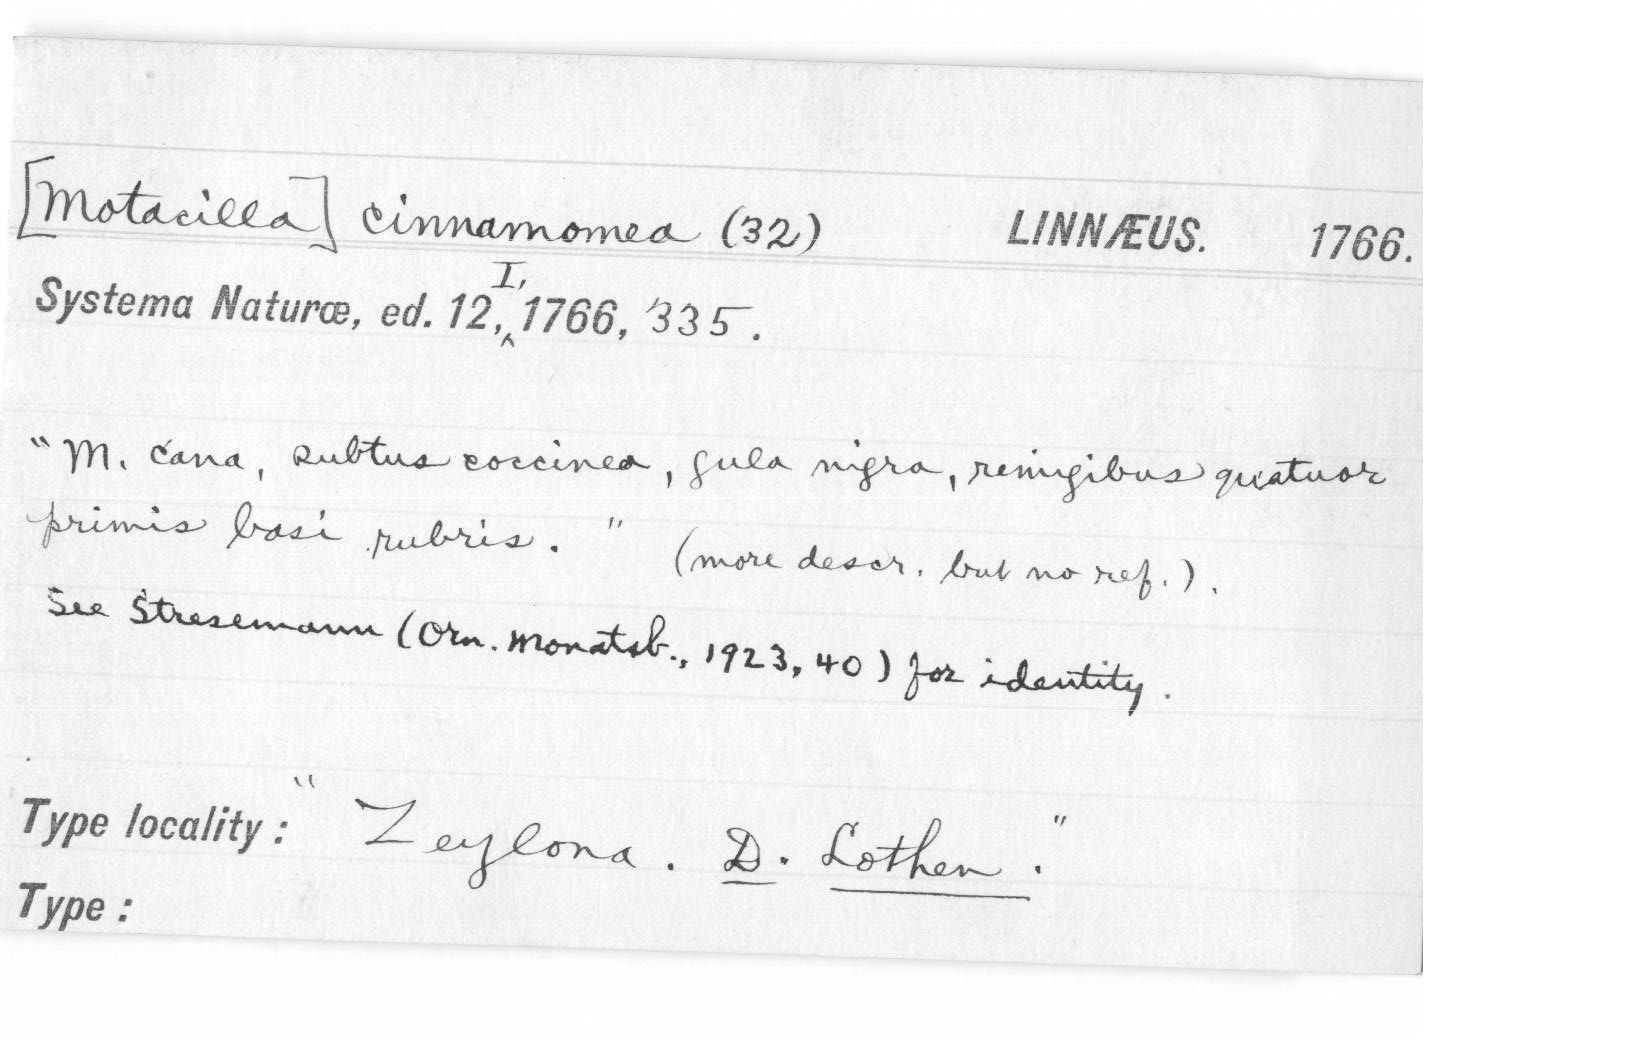 [Motacilla] cinnamomea (32) LINNÆUS. 1766.
Systema Naturæ, ed. 12, I, 1766, 335.
"M. cana, subtus coccinea, gula nigra, remigibus quatuor
primis basi rubris." (more descr. but no ref.).
See Stresemann (Orn. Monatsb., 1923, 40) for identity.
Type locality: "Zeylona. D. Lothen."
Type: